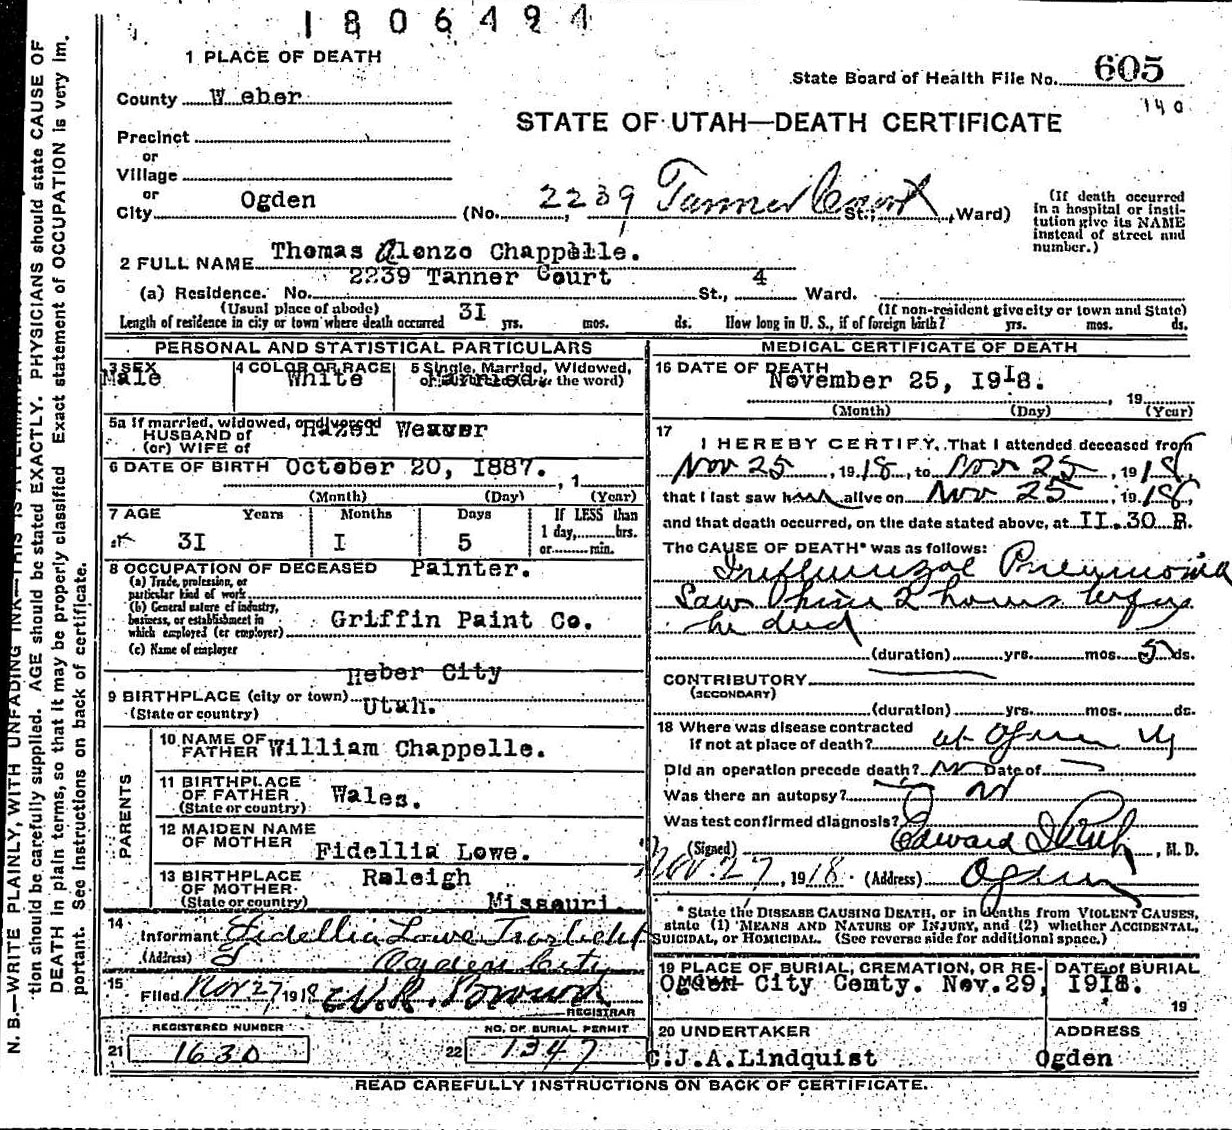 1806494
1 PLACE OF DEATH
State Board of Health File No. 605
140
County Weber
STATE OF UTAH—DEATH CERTIFICATE
Precinct
or
Village
or
City Ogden (No. 2239 Tanner Court St.; Ward)
(If death occurred in a hospital or institution give its NAME instead of street and number.)
2 FULL NAME Thomas Alonzo Chappelle.
(a) Residence. No. 2239 Tanner Court St., 4 Ward.
(Usual place of abode) (If non-resident give city or town and State)
Length of residence in city or town where death occurred 31 yrs. mos. ds. How long in U. S., if of foreign birth? yrs. mos. ds.
PERSONAL AND STATISTICAL PARTICULARS
3 SEX Male
4 COLOR OR RACE White
5 Single, Married, Widowed, or Divorced (write the word) Married.
5a If married, widowed, or divorced
HUSBAND of
(or) WIFE of Hazel Weaver
6 DATE OF BIRTH October 20, 1887. , 1
(Month) (Day) (Year)
7 AGE Years Months Days If LESS than
31 1 5 1 day, hrs.
or min.
8 OCCUPATION OF DECEASED Painter.
(a) Trade, profession, or
particular kind of work
(b) General nature of industry,
business, or establishment in
which employed (or employer) Griffin Paint Co.
(c) Name of employer
9 BIRTHPLACE (city or town) Heber City
(State or country) Utah.
PARENTS
10 NAME OF
FATHER William Chappelle.
11 BIRTHPLACE
OF FATHER
(State or country) Wales.
12 MAIDEN NAME
OF MOTHER Fidellia Lowe.
13 BIRTHPLACE
OF MOTHER
(State or country) Raleigh
Missouri.
14
Informant Fidellia Lowe
(Address) Ogden City
15
Filed Nov. 27 1918
REGISTRAR
REGISTERED NUMBER
21 1630
NO. OF BURIAL PERMIT
22 1347
MEDICAL CERTIFICATE OF DEATH
16 DATE OF DEATH November 25, 1918.
, 19
(Month) (Day) (Year)
17
I HEREBY CERTIFY, That I attended deceased from
Nov 25, 1918, to Nov 25, 1918,
that I last saw him alive on Nov 25, 1918,
and that death occurred, on the date stated above, at 11.30 P.
The CAUSE OF DEATH* was as follows:
Influenzal Pneumonia
Saw him 2 hours before
he died
(duration) yrs. mos. 5 ds.
CONTRIBUTORY
(SECONDARY)
(duration) yrs. mos. ds.
18 Where was disease contracted
If not at place of death? at Ogden
Did an operation precede death? No Date of
Was there an autopsy? No
Was test confirmed diagnosis?
(Signed) Edward I. , M. D.
Nov. 27, 1918. (Address) Ogden
*State the DISEASE CAUSING DEATH, or in deaths from VIOLENT CAUSES,
state (1) MEANS AND NATURE OF INJURY, and (2) whether ACCIDENTAL,
SUICIDAL, or HOMICIDAL. (See reverse side for additional space.)
19 PLACE OF BURIAL, CREMATION, OR RE- DATE of BURIAL
Ogden City Cemty. Nov. 29, 1918.
19
20 UNDERTAKER ADDRESS
C.J.A. Lindquist Ogden
READ CAREFULLY INSTRUCTIONS ON BACK OF CERTIFICATE.
N. B.—WRITE PLAINLY, WITH UNFADING INK—THIS IS A PERMANENT
tion should be carefully supplied. AGE should be stated EXACTLY. PHYSICIANS should state CAUSE OF
DEATH in plain terms, so that it may be properly classified. Exact statement of OCCUPATION is very im.
portant. See instructions on back of certificate.